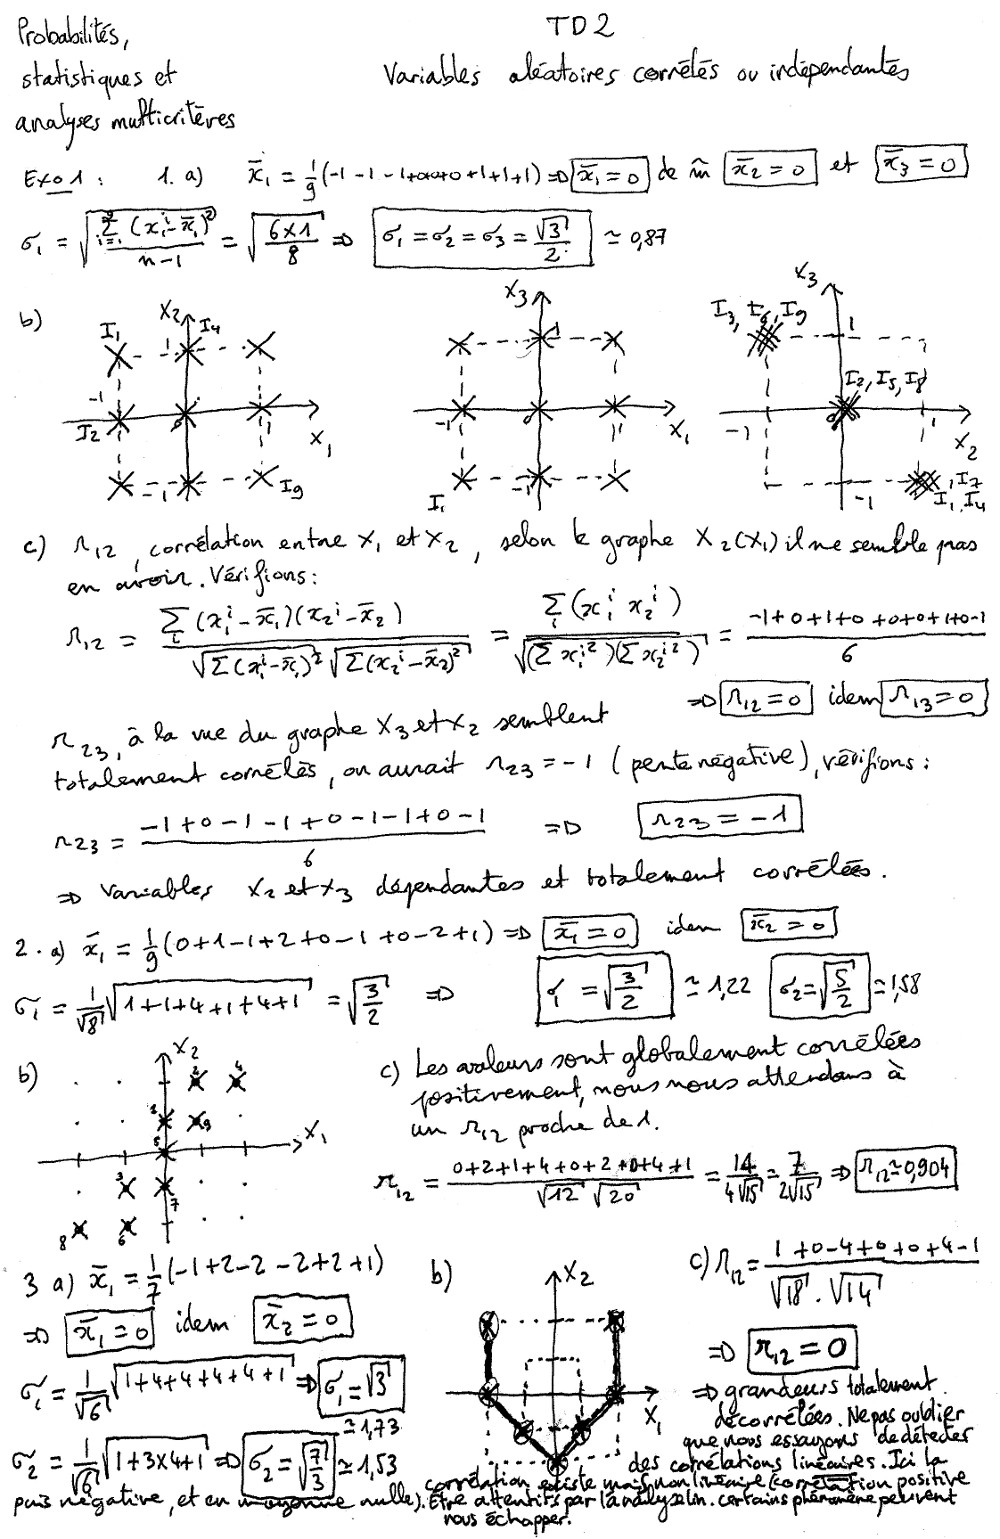 Probabilités,
statistiques et
analyses multicritères
TD2
Variables aléatoires corrélés ou indépendantés
Exo 1 : 1. a) x̄₁ = 1/9 (-1 -1 -1+0+0+0 +1+1+1) => x̄₁ = 0 de m̂ x̄₂ = 0 et x̄₃ = 0
σ₁ = √(Σ(x₁ⁱ - x̄₁)²/(n-1)) = √(6×1/8) => σ₁ = σ₂ = σ₃ = √3/2 ≃ 0,87
b)
X₂
I₁ I₄
1
-1
I₂ 0 1
X₁
-1 I₉
X₃
1
-1 0 1 X₁
I₁ -1
X₃
I₃, I₆, I₉ 1
I₂, I₅, I₈
-1 0 1 X₂
-1 I₁, I₄, I₇
c) r₁₂, corrélation entre X₁ et X₂, selon le graphe X₂(X₁) il ne semble pas
en avoir. Vérifions :
r₁₂ = Σ(x₁ⁱ - x̄₁)(x₂ⁱ - x̄₂) / √Σ(x₁ⁱ - x̄₁)² √Σ(x₂ⁱ - x̄₂)² = Σ(x₁ⁱ x₂ⁱ) / √(Σx₁ⁱ²)(Σx₂ⁱ²) = (-1+0+1+0+0+0+1+0-1)/6
=> r₁₂ = 0 idem r₁₃ = 0
r₂₃, à la vue du graphe X₃ et X₂ semblent
totalement corrélés, on aurait r₂₃ = -1 (pente négative), vérifions :
r₂₃ = (-1+0-1-1+0-1-1+0-1)/6 => r₂₃ = -1
=> Variables X₂ et X₃ dépendantes et totalement corrélées.
2. a) x̄₁ = 1/9 (0+1-1+2+0-1+0-2+1) => x̄₁ = 0 idem x̄₂ = 0
σ₁ = 1/√8 √(1+1+4+1+4+1) = √(3/2) => σ₁ = √(3/2) ≃ 1,22 σ₂ = √(5/2) ≃ 1,58
b) X₂
2 4
1 9
5 X₁
3 7
8 6
c) Les valeurs sont globalement corrélées
positivement, nous nous attendons à
un r₁₂ proche de 1.
r₁₂ = (0+2+1+4+0+2+0+4+1)/(√12 √20) = 14/(4√15) = 7/(2√15) => r₁₂ ≃ 0,904
3 a) x̄₁ = 1/7 (-1+2-2-2+2+1)
=> x̄₁ = 0 idem x̄₂ = 0
σ₁ = 1/√6 √(1+4+4+4+4+1) => σ₁ = √3
≃ 1,73
σ₂ = 1/√6 √(1+3×4+1) => σ₂ = √(7/3) ≃ 1,53
b) X₂
X₁
c) r₁₂ = (1+0-4+0+0+4-1)/(√18 . √14)
=> r₁₂ = 0
=> grandeurs totalement
décorrélées. Ne pas oublier
que nous essayons de détecter
des corrélations linéaires. Ici la
corrélation existe mais non linéaire (corrélation positive
puis négative, et en moyenne nulle). Être attentifs par l'analyse lin. certains phénomène peuvent
nous échapper.